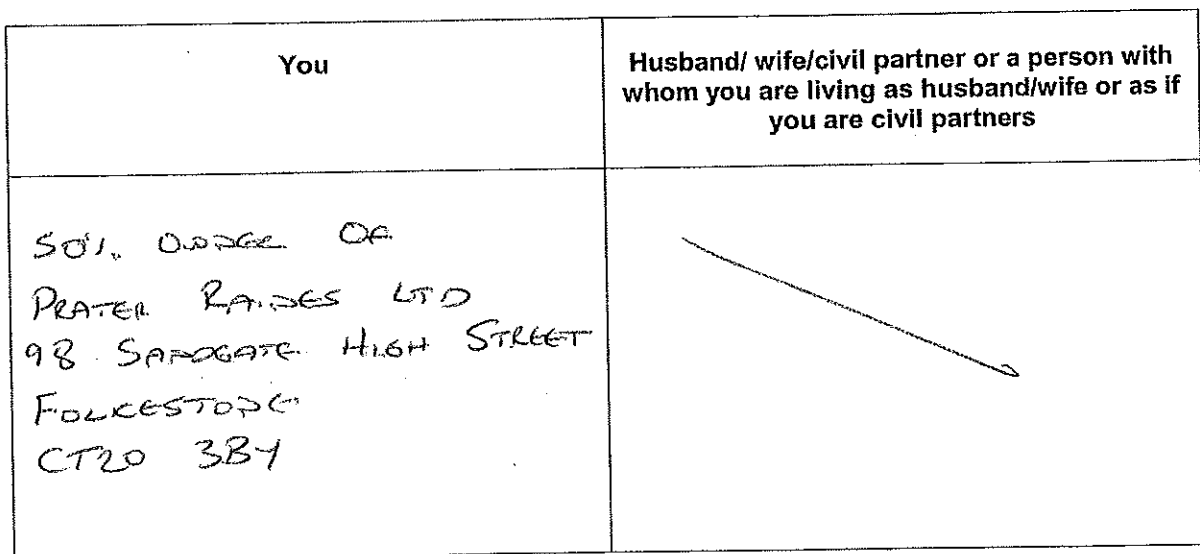 You
Husband/ wife/civil partner or a person with
whom you are living as husband/wife or as if
you are civil partners
50% OWNER OF
PRATER RAINES LTD
98 SANDGATE HIGH STREET
FOLKESTONE
CT20 3BY